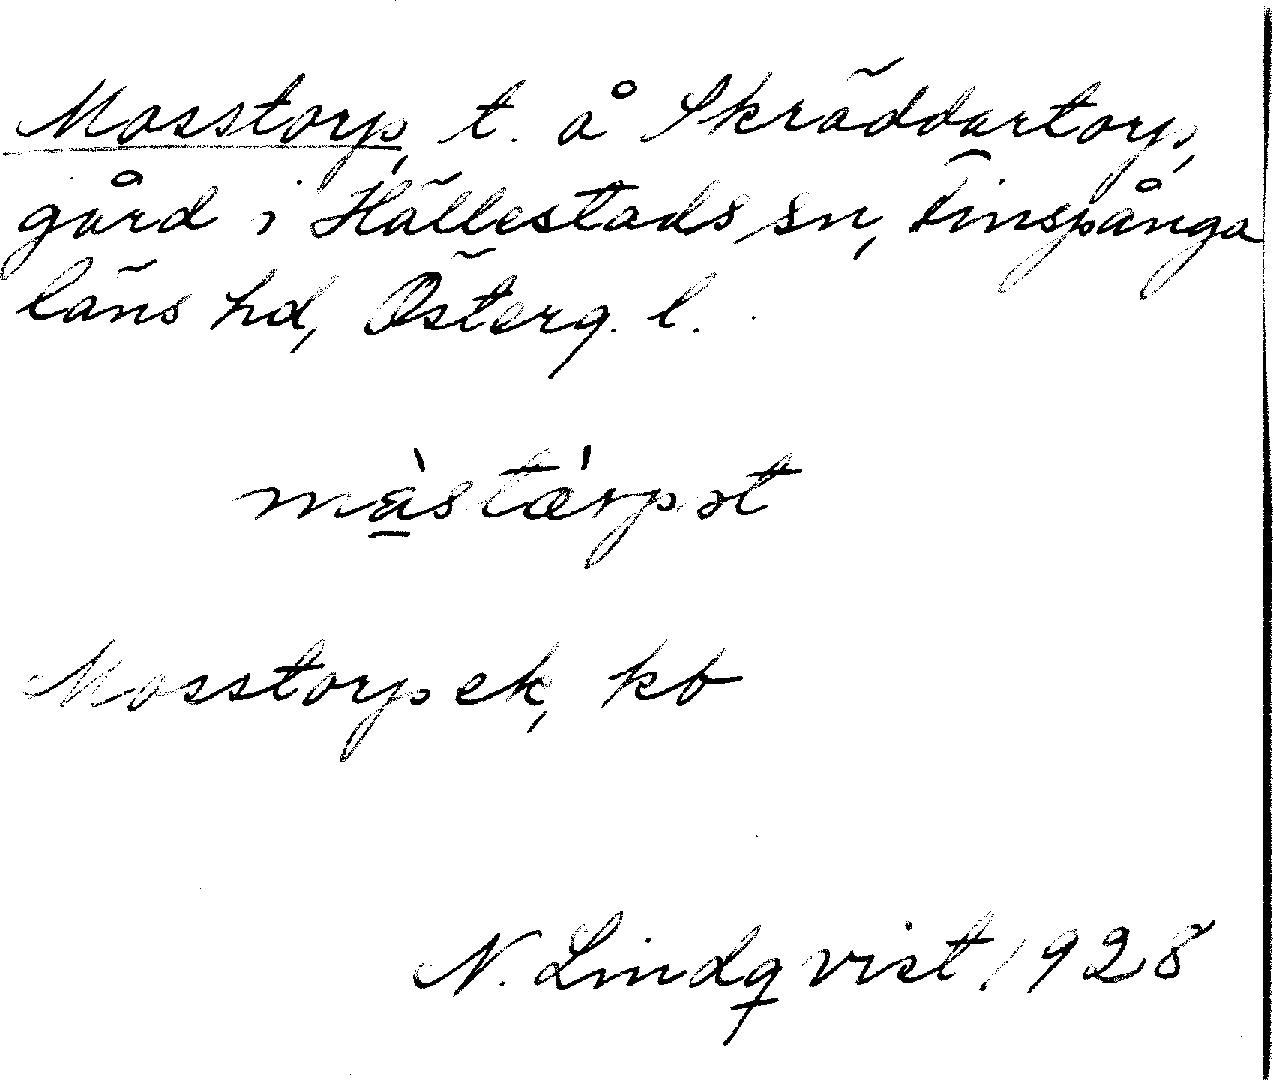 Mosstorp, t. å Skräddartorp,
gård i Hällestads sn, Finspånga
läns hd, Österg. l.
mà̱stæ̀rpət
Mosstorp ek, kb
N. Lindqvist 1928